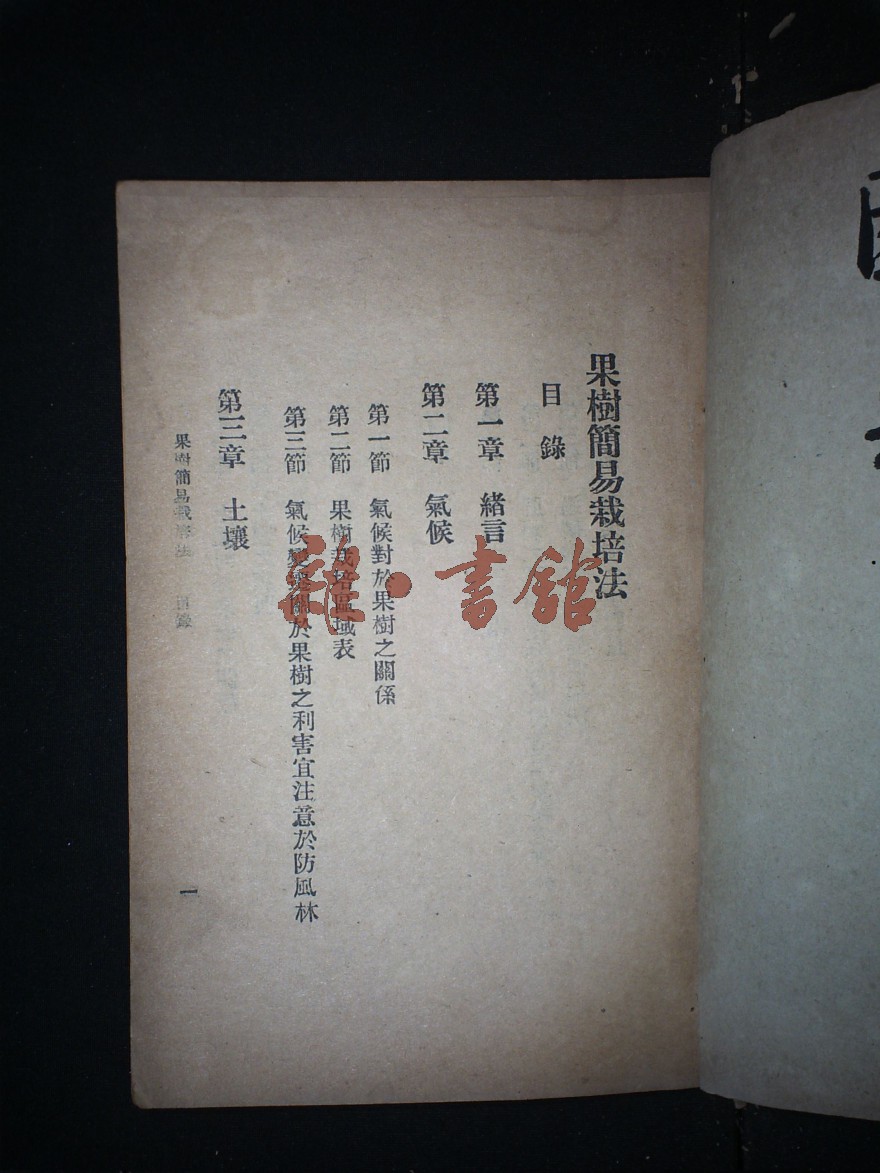 果樹簡易栽培法
目錄
第一章 緒言
第二章 氣候
第一節 氣候對於果樹之關係
第二節 果樹栽培區域表
第三節 氣候變遷關於果樹之利害宜注意於防風林
第三章 土壤
果樹簡易栽培法 目錄
一
雜·書館